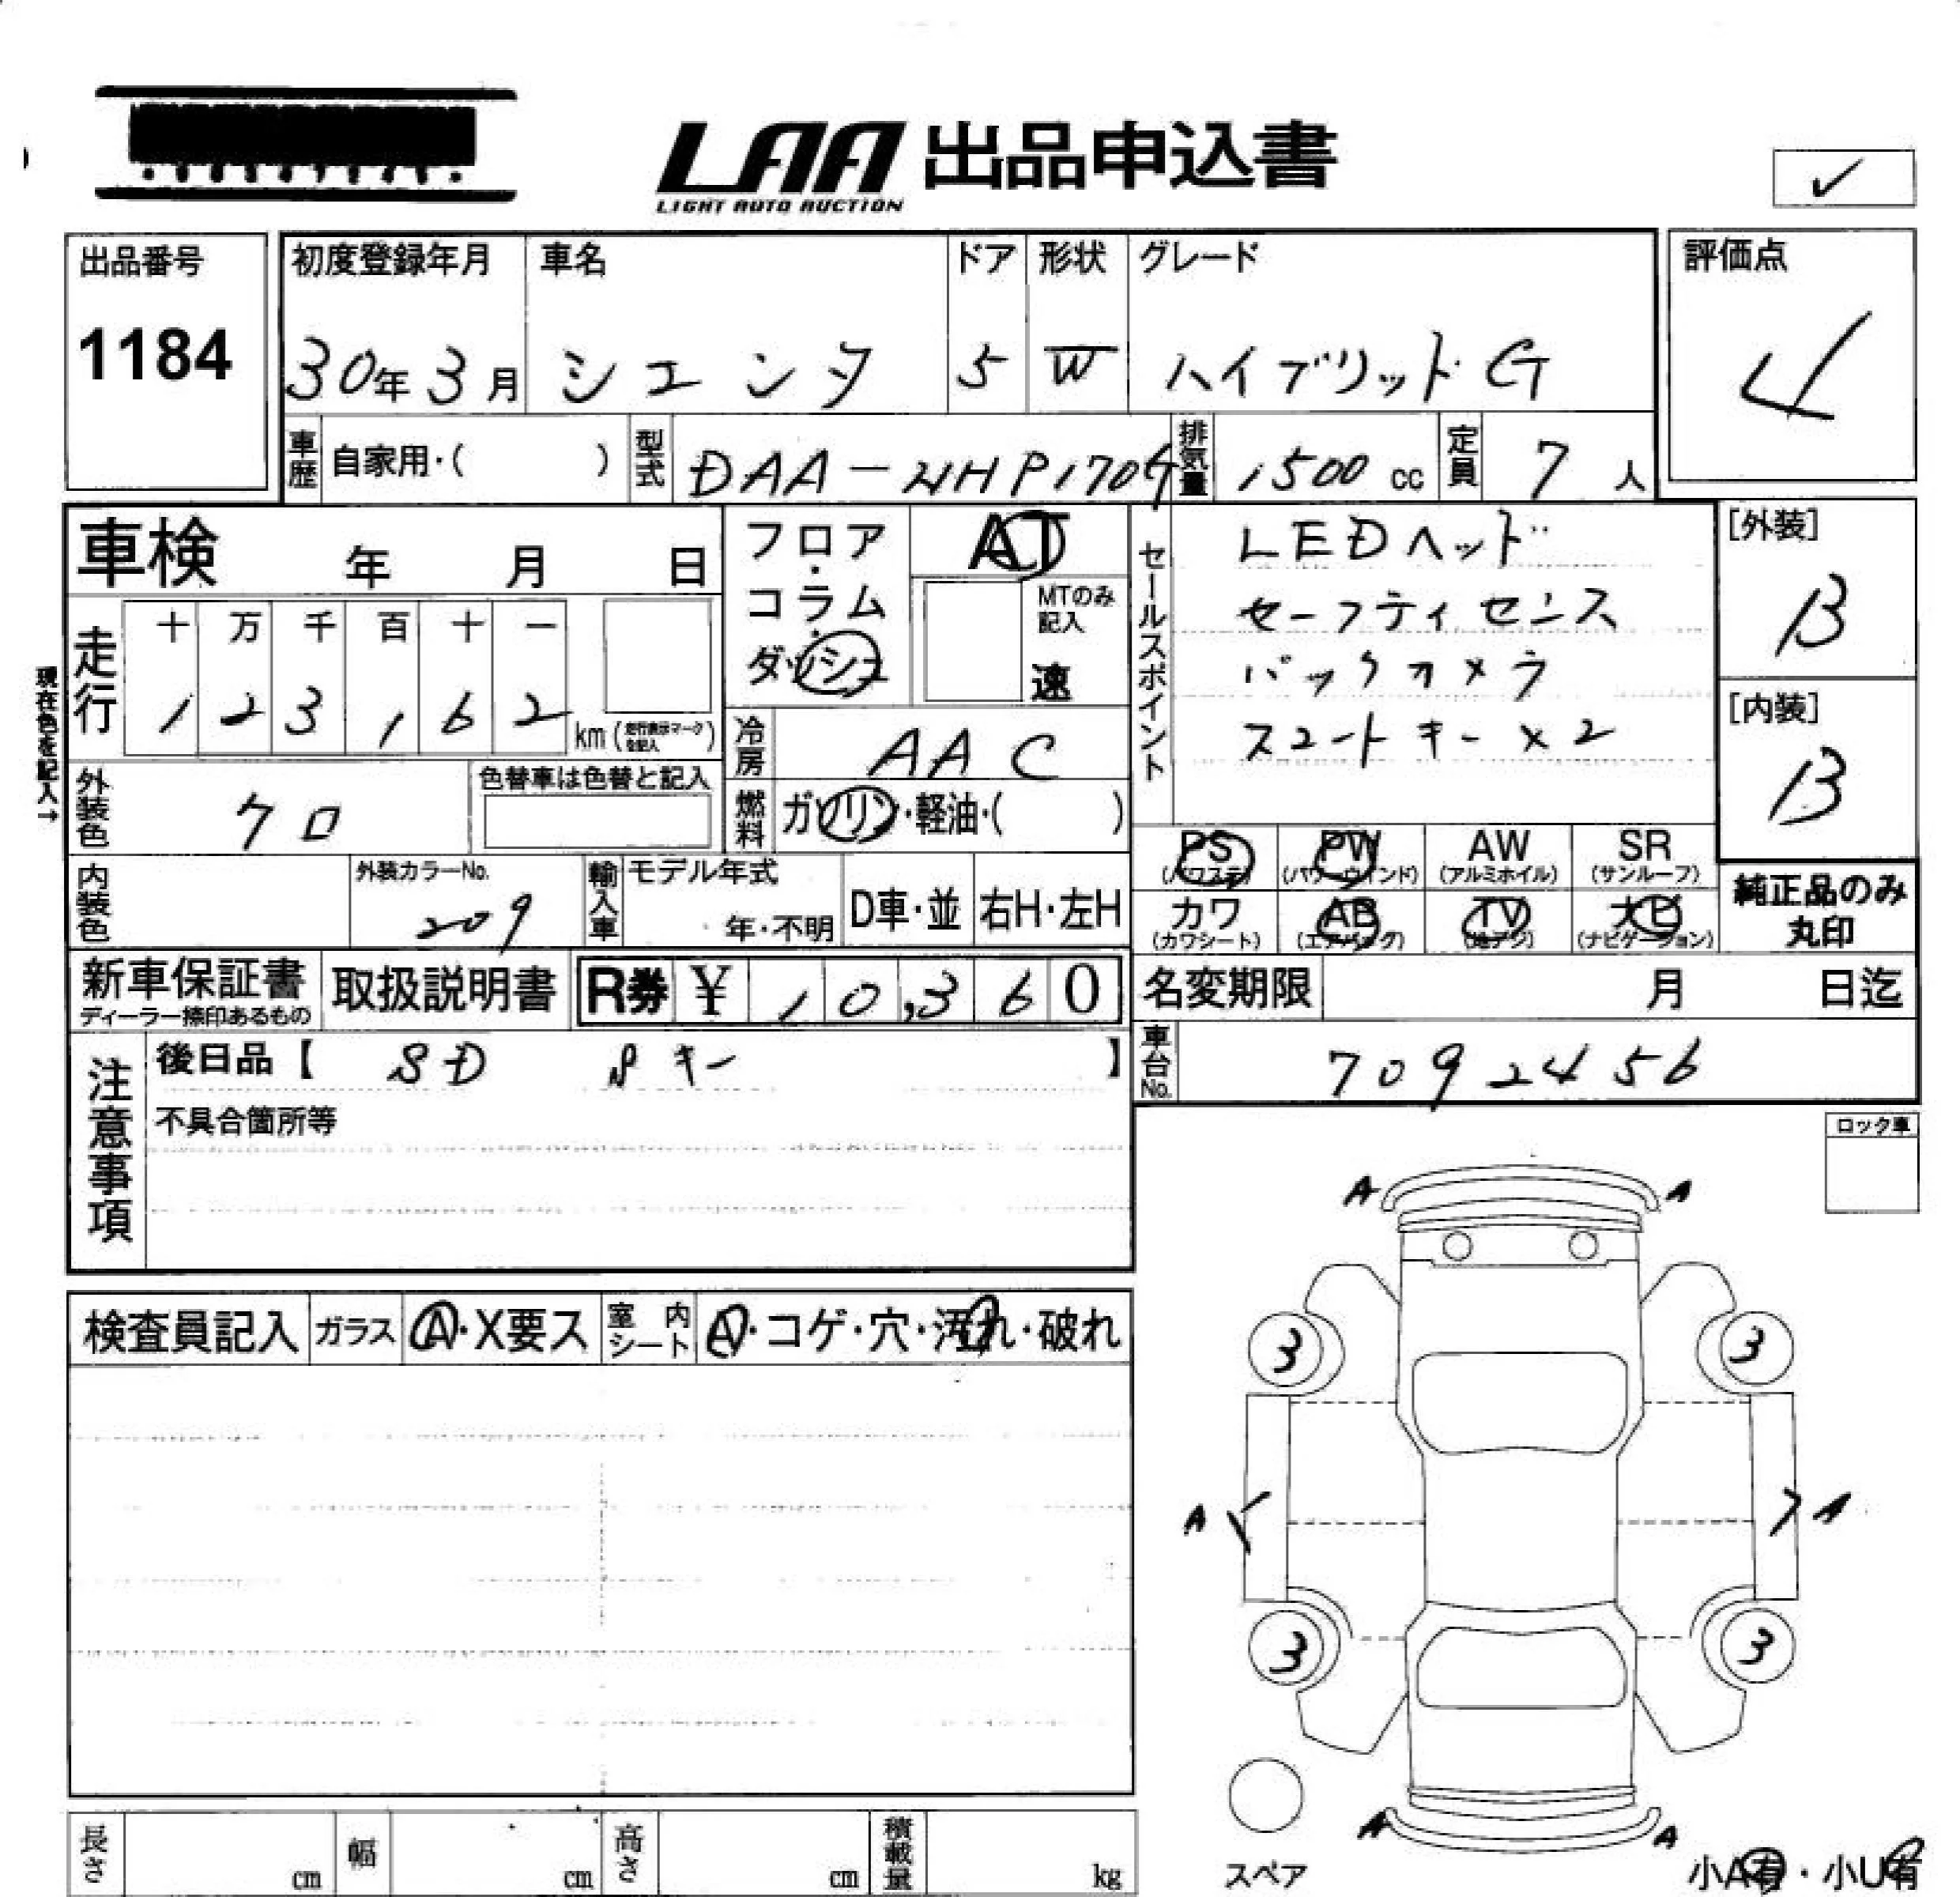 LAA 出品申込書
LIGHT AUTO AUCTION
✓
出品番号
1184
初度登録年月
30年3月
車名
シエンタ
ドア
5
形状
W
グレード
ハイブリッド G
評価点
4
車歴 自家用・( )
型式 DAA-NHP170G
排気量 1500 cc
定員 7 人
車検 年 月 日
走行 十 万 千 百 十 一
1 2 3 1 6 2 km (走行表示マークを記入)
現在色を記入→
外装色 クロ
色替車は色替と記入
内装色
外装カラーNo.
209
フロア・コラム・ダッシュ
AT
MTのみ記入
速
冷房 AAC
燃料 ガソリン・軽油・( )
輸入車 モデル年式
年・不明
D車・並 右H・左H
セールスポイント
LEDヘッド
セーフティセンス
バックカメラ
スマートキー×2
[外装]
B
[内装]
B
PS (パワステ) PW (パワーウインド) AW (アルミホイル) SR (サンルーフ)
カワ (カワシート) AB (エアバック) TV (地デジ) ナビ (ナビゲーション)
純正品のみ
丸印
新車保証書
ディーラー捺印あるもの
取扱説明書
R券 ¥ 10,360
名変期限 月 日迄
車台No. 7092456
注意事項
後日品【 SD Sキー 】
不具合箇所等
ロック車
検査員記入 ガラス A・X要ス 室内シート A・コゲ・穴・汚れ・破れ
A A
3 3
A A
3 3
A A
スペア
小A有・小U有
長さ cm 幅 cm 高さ cm 積載量 kg